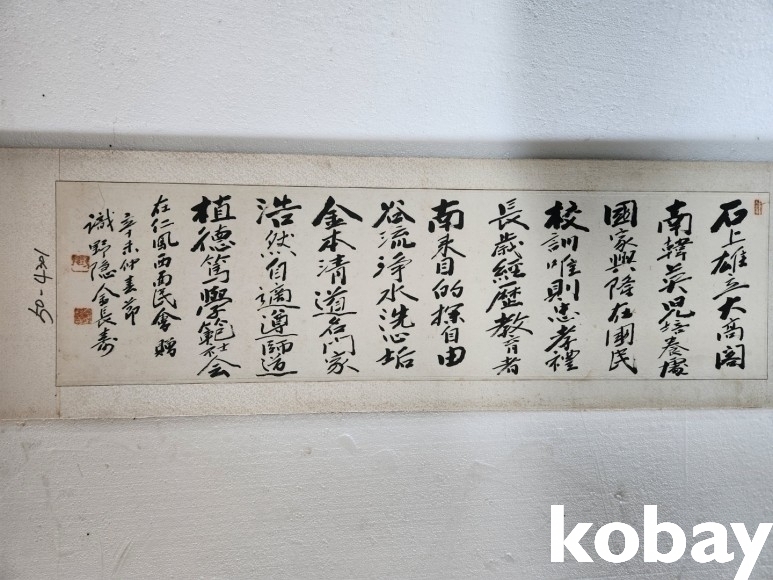 石上雄立大高閣
南韓英児培養處
國家興隆在國民
校訓唯則忠孝禮
長歲經歷教育者
南来目的探自由
谷流浄水洗心垢
金本清道名門家
浩然自適遵師道
植德篤學範社会
在仁風西面民會贈
辛未仲春節
識野隱金長壽
50-4301
kobay